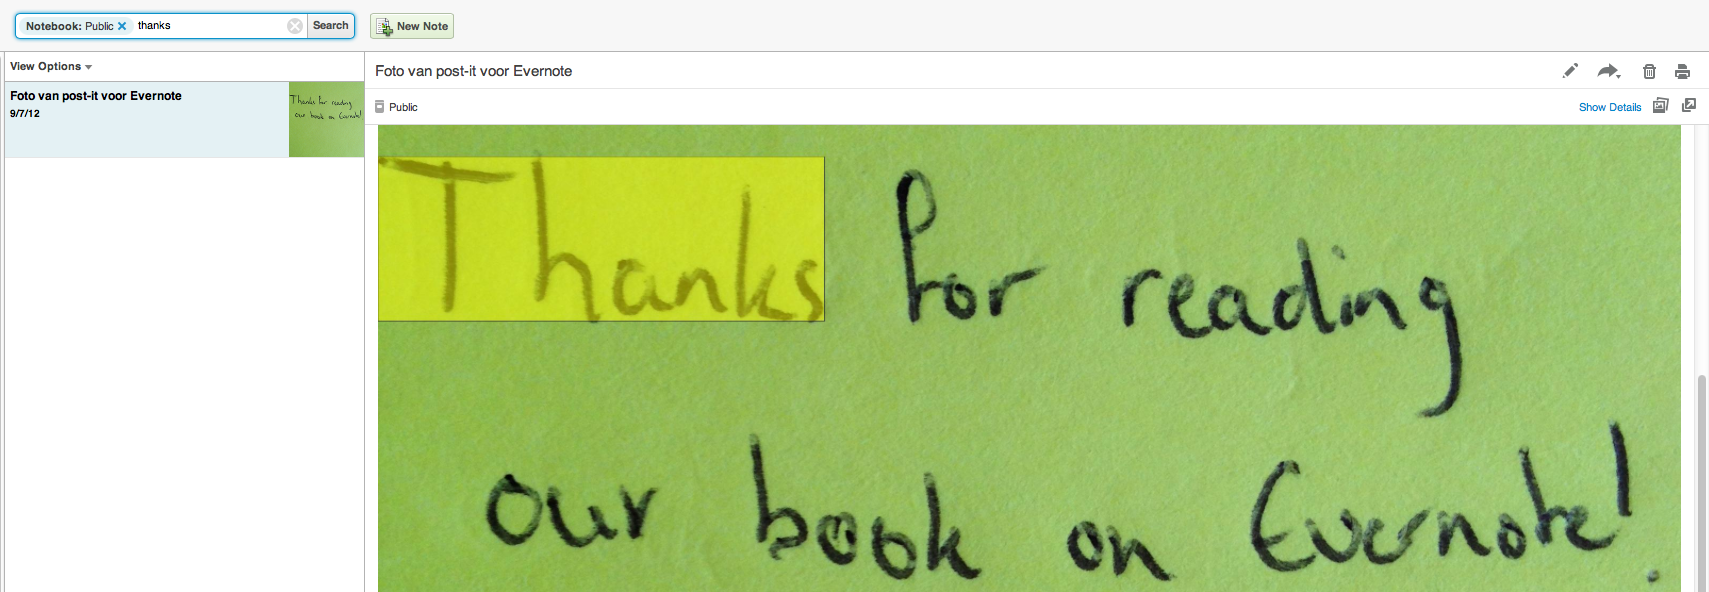 Notebook: Public thanks Search New Note
View Options
Foto van post-it voor Evernote
9/7/12
Thanks for reading
our book on Evernote!
Foto van post-it voor Evernote
Public Show Details
Thanks for reading
our book on Evernote!